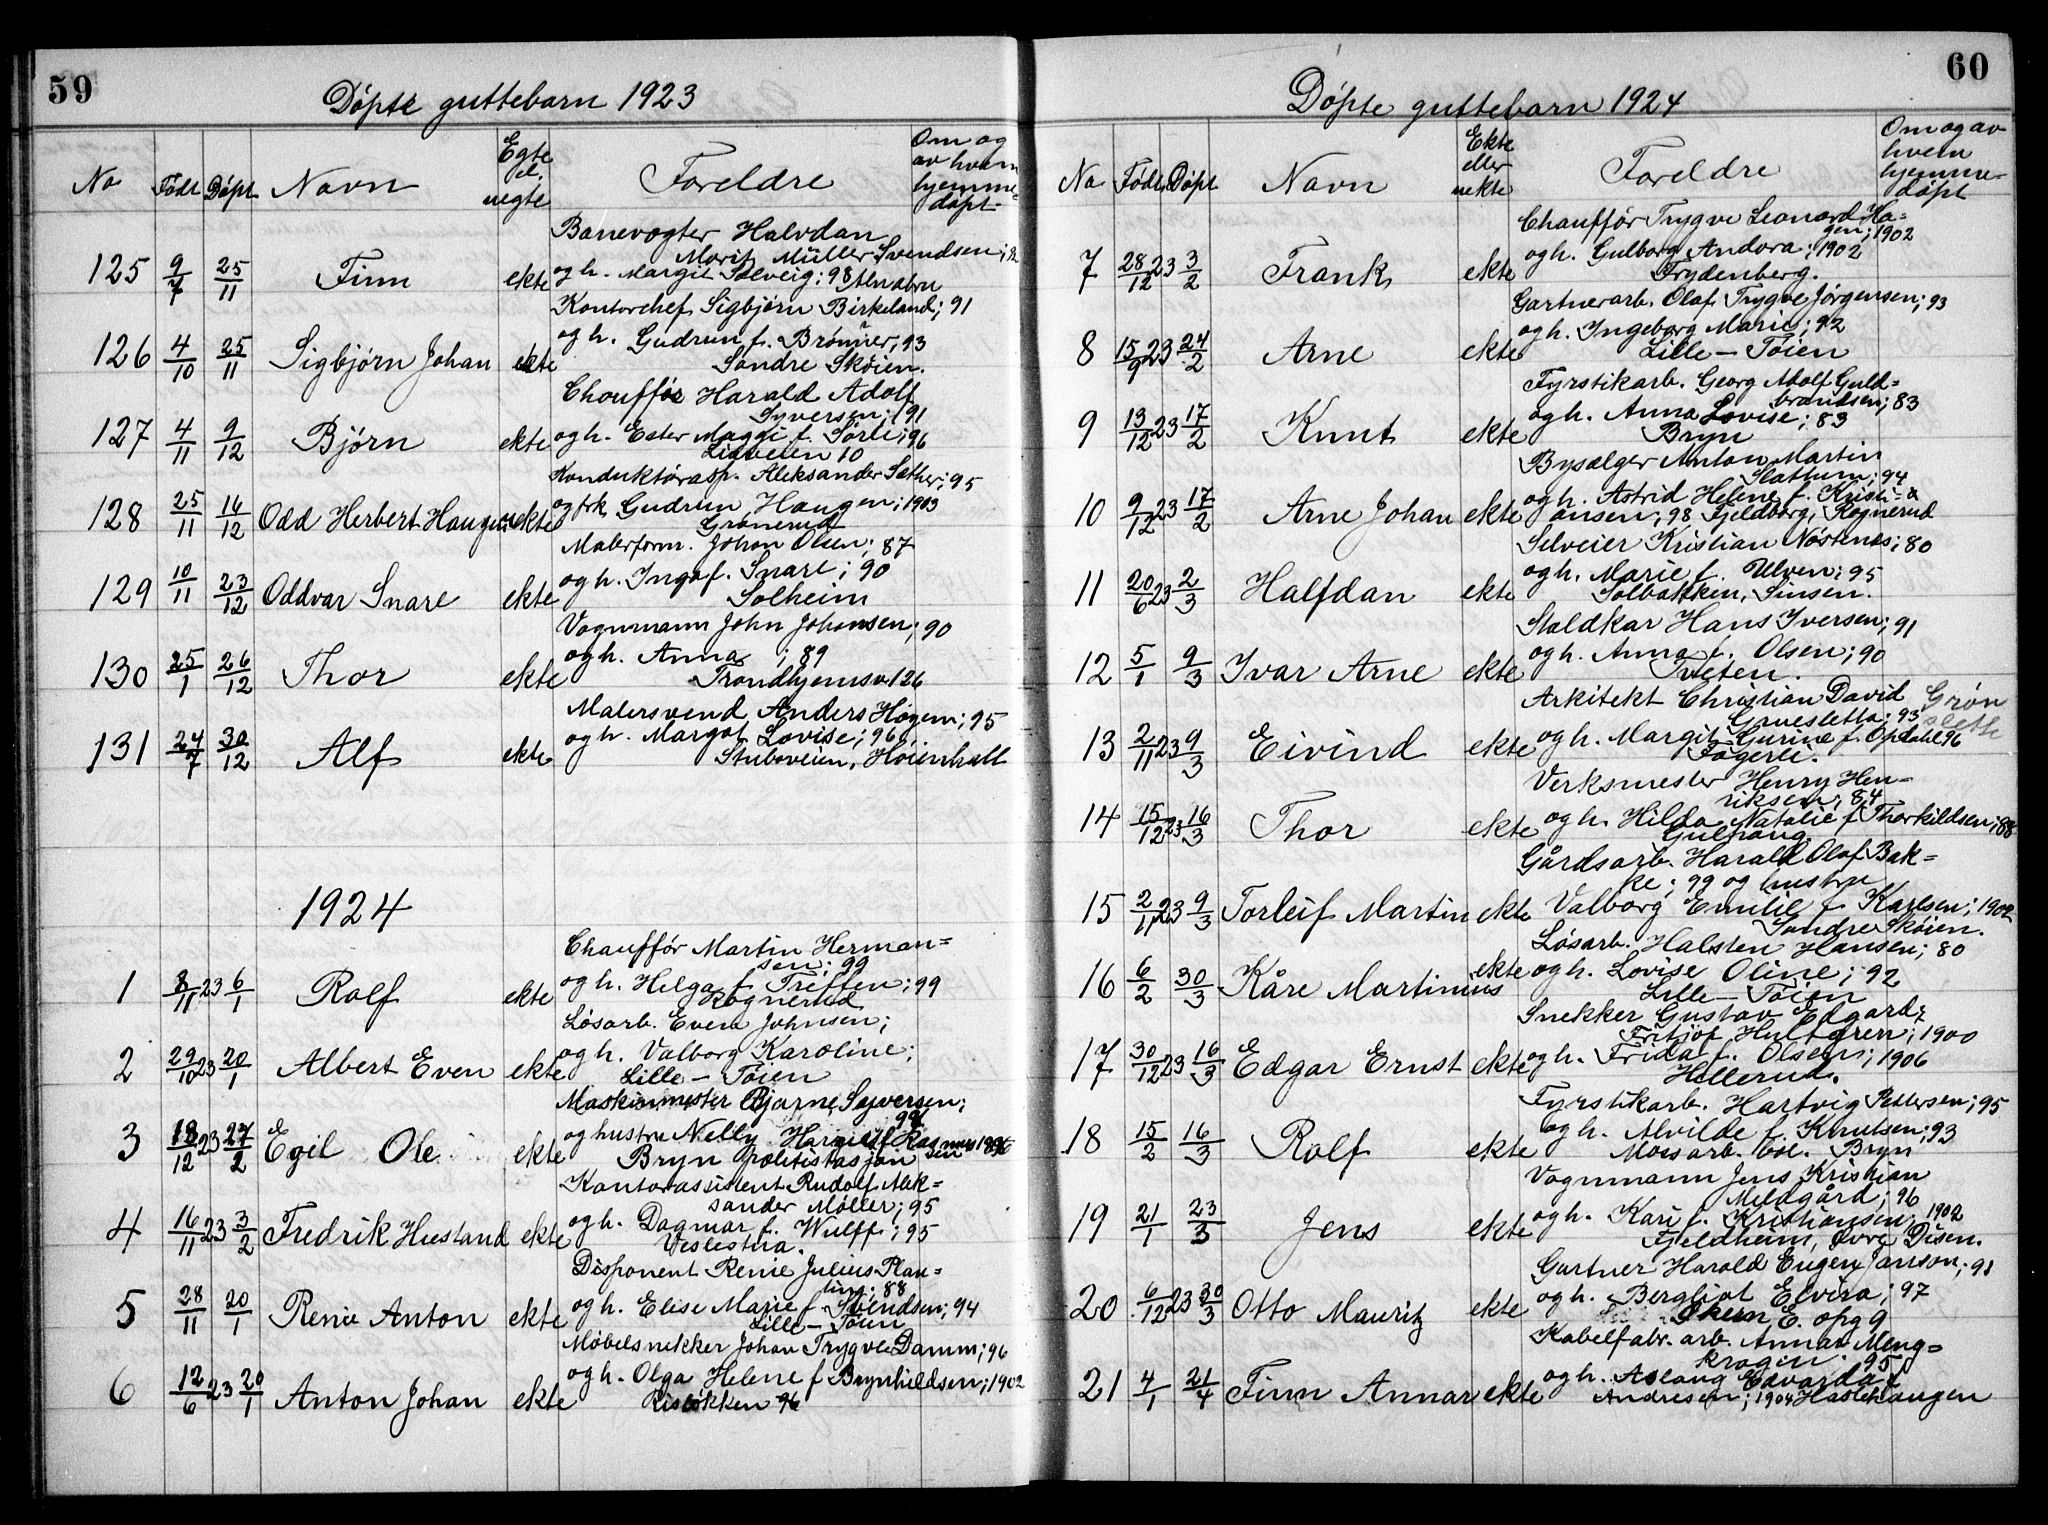 59
Døpte guttebarn 1923
No Født Døpt Navn Egte el. uegte Foreldre Om og av hvem hjemmedøpt
Banevogter Halvdan
Morit Müller Svendsen; 92
125 9/7 25/11 Finn ekte og h. Margit Solveig; 98 Alnabru
Kontorchef Sigbjørn Birkeland; 91
og h. Gudrun f. Brønner; 93
126 4/10 25/11 Sigbjørn Johan ekte Søndre Skøien.
Chauffør Harald Adolf
Syversen; 91
127 4/11 9/12 Bjørn ekte og h. Ester Maggi f. Sørli; 96
Lisveien 10
Konduktørasp. Aleksander Sæther; 95
128 25/11 16/12 Odd Herbert Haugen uekte og frk Gudrun Haugen; 1903
Grønerud
Malerform. Johan Olsen; 87
og h. Inga f. Snare; 90
129 10/11 23/12 Oddvar Snare ekte Solheim
Vognmann John Johansen; 90
og h. Anna ; 89
130 25/1 26/12 Thor ekte Trondhjemsv. 126
Malersvend Anders Hagem; 95
og h. Margot Lovise; 96
131 24/7 30/12 Alf ekte Stuboveien, Høienhall
1924
Chauffør Martin Herman=
sen; 99
1 8/11 23 6/1 Rolf ekte og h. Helga f. Treffen; 99
Rognerud
Løsarb. Even Johnsen;
og h. Valborg Karoline;
2 29/10 23 20/1 Albert Even ekte Lille-Tøien
Maskinmester Bjarne Syversen;
99
3 18/12 23 27/2 Egil Ole ekte og hustru Nelly f. Rasmussen
Bryn politistasjon
Kontorassistent Rudolf Alek=
sander Møller; 95
4 16/11 23 3/2 Fredrik Hustand ekte og h. Dagmar f. Wulff; 95
Veslestua.
Disponent Renie Julius Plan=
ting; 88
5 28/11 20/1 Renie Anton ekte og h. Elise Marie f. Svendsen; 94
Lille-Tøien
Møbelsnekker Johan Trygve Damm; 96
og h. Olga Helene f Brynhildsen; 1902
6 12/6 23 20/1 Anton Johan ekte Risløkken 96
60
Døpte guttebarn 1924
No Født Døpt Navn Ekte eller uekte Foreldre Om og av hvem hjemme-døpt
Chauffør Trygve Leonard Ha=
gen; 1902
7 28/12 23 3/2 Frank ekte og h. Gulborg Andora; 1902
Frydenberg.
Gartnerarb. Olaf Trygve Jørgensen; 93
og h. Ingeborg Marie; 92
8 15/9 23 24/2 Arne ekte Lille-Tøien
Fyrstikarb. Georg Adolf Guld=
brandsen; 83
9 13/12 23 17/2 Knut ekte og h. Anna Lovise; 83
Bryn
Bysælger Anton Martin
Slattum; 94
10 9/12 23 17/2 Arne Johan ekte og h. Astrid Helene f. Kristi-
ansen; 98 Fjeldborg, Rognerud
Selveier Kristian Nøstenes; 80
og h. Marie f. Ulven; 95
11 20/6 23 2/3 Halfdan ekte Solbakken, Sinsen.
Staldkar Hans Iversen; 91
og h. Anna f. Olsen; 90
12 5/1 9/3 Ivar Arne ekte Tveten.
Arkitekt Christian David Grøn
Gruesletta; 93 slette
13 2/11 23 9/3 Eivind ekte og h. Margit Gurine f. Opdahl 96
Fagerli.
Verksmester Henry Hen=
riksen; 84
14 15/12 23 16/3 Thor ekte og h. Hilda Natalie f Thorkildsen; 88
Gulhaug
Gårdsarb. Harald Olaf Bak=
ke; 99 og hustru
15 2/11 23 9/3 Torleif Martin ekte Valborg Emilie f Karlsen; 1902
Søndre Skøien.
Løsarb. Halsten Hansen; 80
16 6/2 30/3 Kåre Martinius ekte og h. Lovise Oline; 92
Lille-Tøien
Snekker Gustav Edgard
Fritjof Hultgren; 1900
17 30/12 23 16/3 Edgar Ernst ekte og h. Frida f. Olsen; 1906
Hellerud.
Fyrstikarb. Hartvig Pettersen; 95
og h. Alvilde f. Knutsen; 93
18 15/2 16/3 Rolf ekte Mossarb. bol. Bryn
Vognmann Jens Kristian
Meldgård; 96
19 21/1 23/3 Jens ekte og h. Kari f. Kristiansen; 1902
Fjeldheim, øvre Disen.
Gartner Harald Eugen Janson; 91
og h. Bergliot Elvira; 97
20 6/12 23 30/3 Otto Mauritz ekte Økern, E. opg 9
Kabelfabr. arb. Annar Meng=
kragen 95
21 4/1 21/4 Finn Annar ekte og h. Aslaug Edvarda f
Andresen; 1904 Haslehaugen